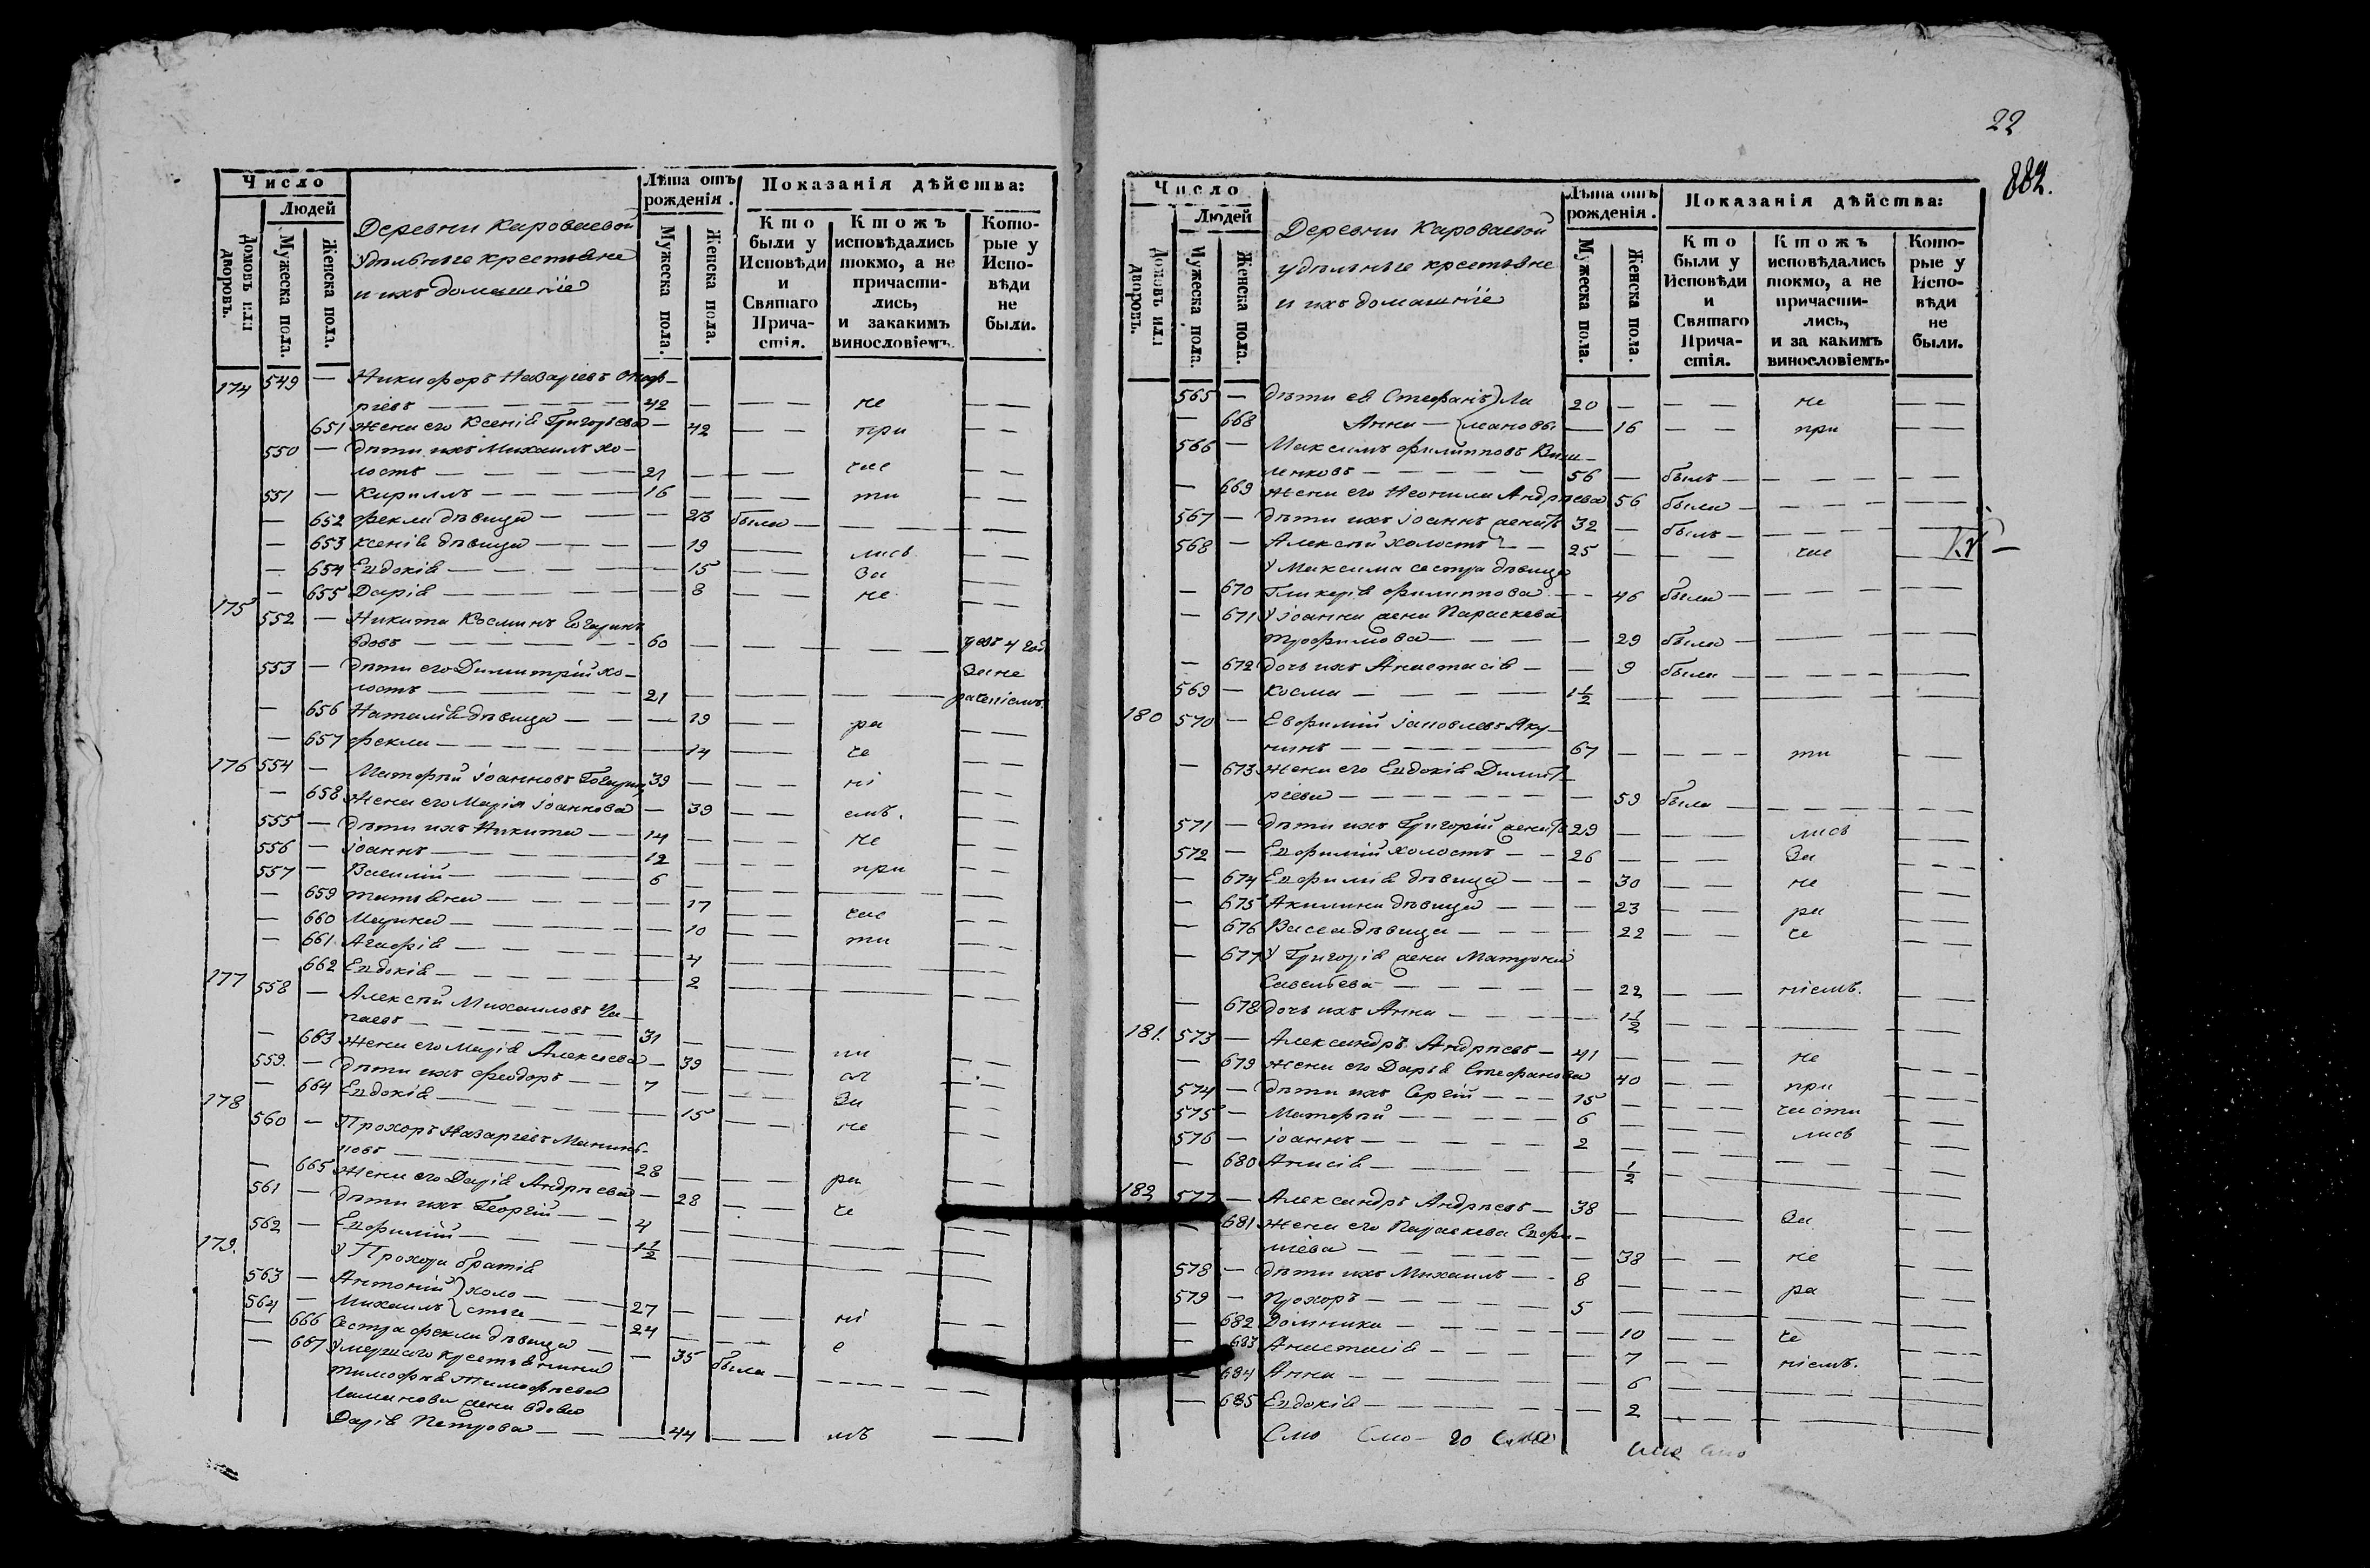 Число
Людей
Домовъ или дворовъ.
Мужеска пола.
Женска пола.
Деревни Кароваевой
удѣльные крестьяне
и ихъ домашніе
Лѣта отъ рожденія.
Мужеска пола.
Женска пола.
Показанія дѣйства:
Кто были у Исповѣди и Святаго Причастія.
Ктожъ исповѣдались токмо, а не причастились, и закакимъ винословіемъ.
Которые у Исповѣди не были.
174 549 — Никифоръ Назарьевъ
42 — не
651 жена его Ксенія Григорьева — 42 — при
550 — дѣти ихъ Михаилъ хо-
лостъ — 21 — час
551 — Кириллъ — 16 — ти
652 Фекла дѣвица — 23 была
653 Ксенія дѣвица — 19 — лись
654 Евдокія — 15 — За
655 Дарія — 8 — не
175 552 — Никита Косминъ
вдовъ — 60
553 — дѣти его Димитрій хо- Зане
лостъ — 21 — раченіемъ.
656 Наталія дѣвица — 19 — ра
657 Фекла — 14 — че
176 554 — Матөей Іоанновъ 39 — ні
658 Жена его Марія Іоаннова — 39 — емъ.
555 — дѣти ихъ Никита — 14 — Не
556 — Іоаннъ — 12 — при
557 — Василій — 6
659 Татьяна — 17 — час
660 Марина — 10 — ти
661 Агафія — 4
662 Евдокія — 2
177 558 — Алексѣй Михаиловъ
31
663 Жена его Марія Алексѣева — 39
559. — дѣти ихъ Феодоръ — 7
664 Евдокія — 15 — За
178 560 — Прохоръ Назарьевъ не
28
665 Жена его Дарія Андрѣева — 28 — ра
561 — дѣти ихъ Георгій — 4 — че
562 — Евфимій — 1½
179. У Прохора братія
563 — Антоній } холо- 27 — ні
564 — Михаилъ } стые 24 — е
666 Сестра Фекла дѣвица — 35 была
667 Умершаго крестьянина
Тимофея Тимофеева
Ламанова жена вдова
Дарія Петрова — 44 — мъ
22
882.
Число
Людей
Домовъ или дворовъ.
Мужеска пола.
Женска пола.
Деревни Кароваевой
удѣльные крестьяне
и ихъ домашніе
Лѣта отъ рожденія.
Мужеска пола.
Женска пола.
Показанія дѣйства:
Кто были у Исповѣди и Святаго Причастія.
Ктожъ исповѣдались токмо, а не причастились, и за какимъ винословіемъ.
Которые у Исповѣди не были.
565 — дѣти ея Стефанъ } Ла 20 — не
668 Анна — } мановы — 16 — при
566 — Максимъ Филипповъ
56 — былъ
669 Жена его Неонила Андрѣева 56 была
567 — дѣти ихъ Іоаннъ женатъ 32 — былъ
568 — Алексѣй холостъ — 25 — час
У Максима сестра дѣвица
670 Гликерія Филиппова — 46 была
671 У Іоанна жена Параскева
Трофимова — 29 была
672 дочь ихъ Анастасія — 9 была
569 — Косма — 1½
180 570 — Евфимій Іаковлевъ Аку-
нинъ — 67 — ти
673 Жена его Евдокія Димит-
ріева — 59 была
571 — дѣти ихъ Григорій женатъ 29 — лись
572 — Евфимій холостъ — 26 — За
674 Евфимія дѣвица — 30 — не
675 Акилина дѣвица — 23 — ра
676 Васса дѣвица — 22 — че
677 У Григорія жена Матрона
Савельева — 22 — ніемъ.
678 дочь ихъ Анна — 1½
181. 573 — Александръ Андрѣевъ — 41 — не
679 Жена его Дарія Стефанова 40 — при
574 — дѣти ихъ Сергій — 15 — части
575 — Матөей — 6 — лись
576 — Іоаннъ — 2
680 Анисія — ½
182 577 — Александръ Андрѣевъ — 38 — За
681 Жена его Параскева Евфи-
міева — 38 — не
578 — дѣти ихъ Михаилъ — 8 — ра
579 — Прохоръ — 5
682 Домника — 10 — че
683 Анастасія — 7 — ніемъ.
684 Анна — 6
685 Евдокія — 2